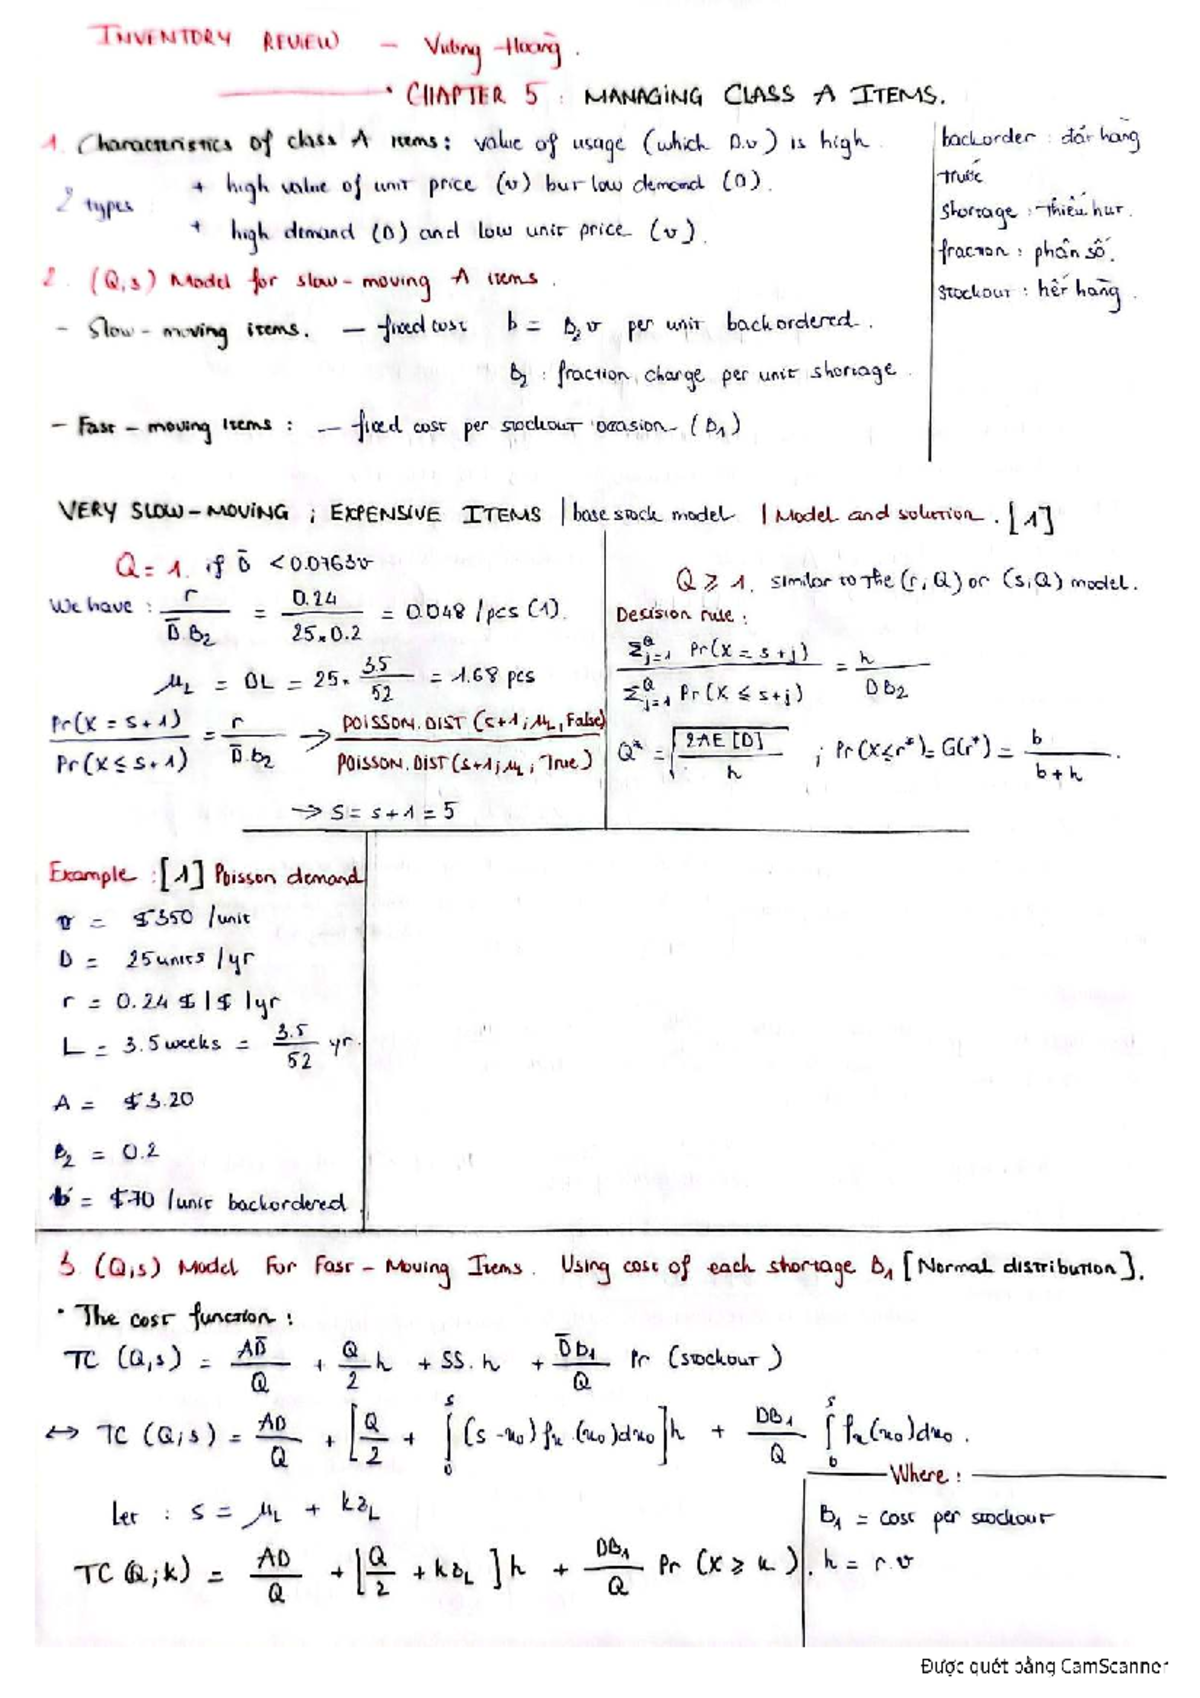 INVENTORY REVIEW - Vương Hoàng.
• CHAPTER 5 : MANAGING CLASS A ITEMS.
1. Characteristics of class A items: value of usage (which D.v) is high.
2 types
+ high value of unit price (v) but low demand (D).
+ high demand (D) and low unit price (v).
backorder : đặt hàng
trước
Shortage : thiếu hụt.
fraction : phân số.
Stockout : hết hàng.
2. (Q,s) Model for slow-moving A items.
- Slow-moving items. - fixed cost b = B₂v per unit backordered.
B₂ : fraction charge per unit shortage.
- Fast-moving items : - fixed cost per stockout occasion (B₁)
VERY SLOW-MOVING ; EXPENSIVE ITEMS | base stock model | Model and solution. [1]
Q = 1. if D̄ < 0.0763v
We have : r / D̄.B₂ = 0.24 / 25×0.2 = 0.048 /pcs (1).
μL = DL = 25. 3.5/52 = 1.68 pcs
Pr(X = s+1) / Pr(X ≤ s+1) = r / D̄.b₂ → POISSON.DIST (s+1; μL, False) / POISSON.DIST (s+1; μL; True)
→ S = s+1 = 5
Q ≥ 1. similar to the (r,Q) or (s,Q) model.
Desision rule :
Σ^Q_{j=1} Pr(X = s+j) / Σ^Q_{j=1} Pr(X ≤ s+j) = h / DB₂
Q* = √(2AE[D] / h) ; Pr(X≤r*) = G(r*) = b / b+h .
Example : [1] Poisson demand
v = $350 /unit
D = 25 units /yr
r = 0.24 $|$ |yr
L = 3.5 weeks = 3.5/52 yr.
A = $3.20
B₂ = 0.2
b = $70 /unit backordered.
3. (Q,s) Model For Fast-Moving Items. Using cost of each shortage B₁ [Normal distribution].
• The cost function :
TC (Q,s) = AD̄/Q + Q/2 h + SS.h + D̄b₁/Q Pr (stockout)
↔ TC (Q;s) = AD/Q + [Q/2 + ∫₀ˢ (s - x₀) fₓ (x₀)dx₀]h + DB₁/Q ∫₀ˢ fₓ(x₀)dx₀ .
Let : s = μL + kσL
TC (Q;k) = AD/Q + [Q/2 + kσL]h + DB₁/Q Pr (X ≥ k).
Where :
B₁ = cost per stockout
h = r.v
Được quét bằng CamScanner